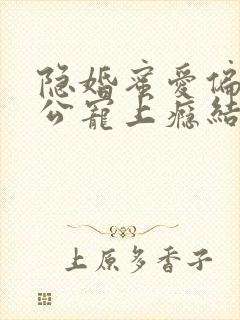 隐婚蜜爱偏
公寵上瘾結
上原多香子